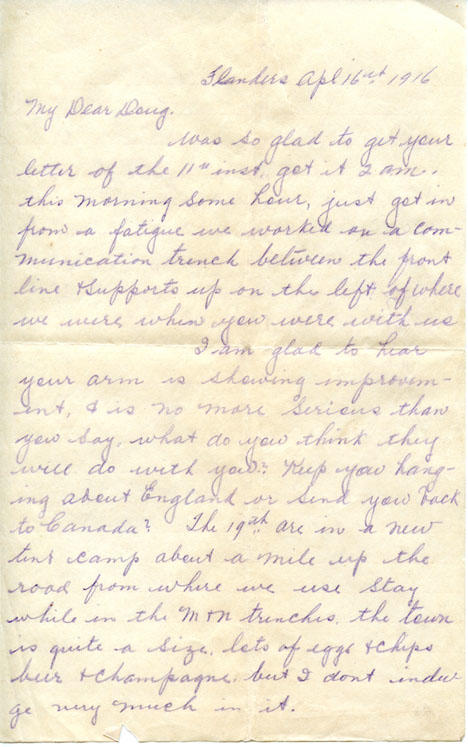 Flanders Apl 16th 1916
My Dear Doug.
Was so glad to get your
letter of the 11th inst, got it 2 am.
this morning some hour, just got in
from a fatigue we worked on a com-
munication trench between the front
line & supports up on the left of where
we were when you were with us
I am glad to hear
your arm is showing improvem-
ent, & is no more serious than
you say, what do you think they
will do with you? Keep you hang-
ing about England or send you back
to Canada? The 19th are in a new
tent camp about a mile up the
road from where we use stay
while in the M & N trenches, the town
is quite a size, lots of eggs & chips
beer & champagne, but I dont indul-
ge very much in it.